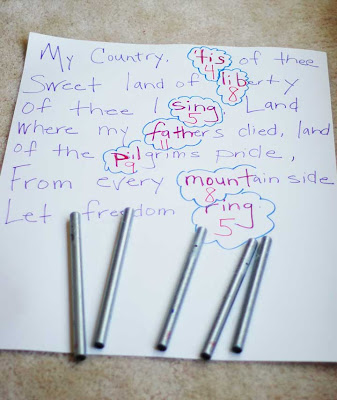 My Country, 'tis of thee
4
Sweet land of liberty
8
Of thee I sing Land
5
where my fathers died, land
11
of the pilgrims pride,
9
From every mountain side
8
Let freedom ring
5